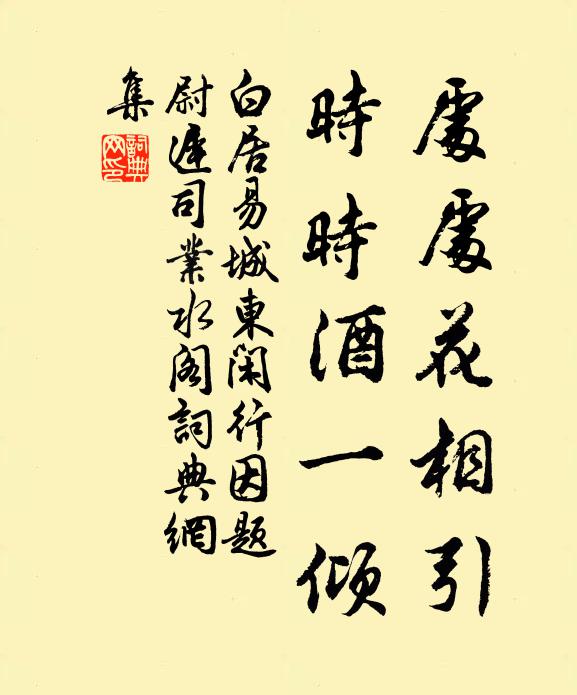 處處花相引
時時酒一傾
白居易城東閑行因題
尉遲司業水閣詞典網
集
詞典網印